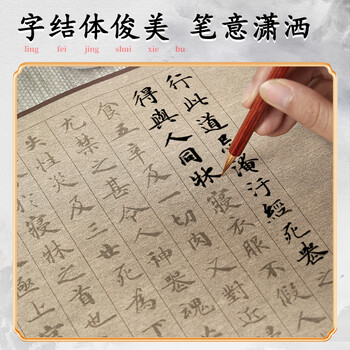 字结体俊美 笔意潇洒
ling fei jing shui xie bu
行此道忌淹汙經死喪
得與人同牀寢衣服不假人
食五辛及一切肉又對近
尤禁之甚令人神喪魂
失性災及三世死為下
寢牀之首也
極上宮